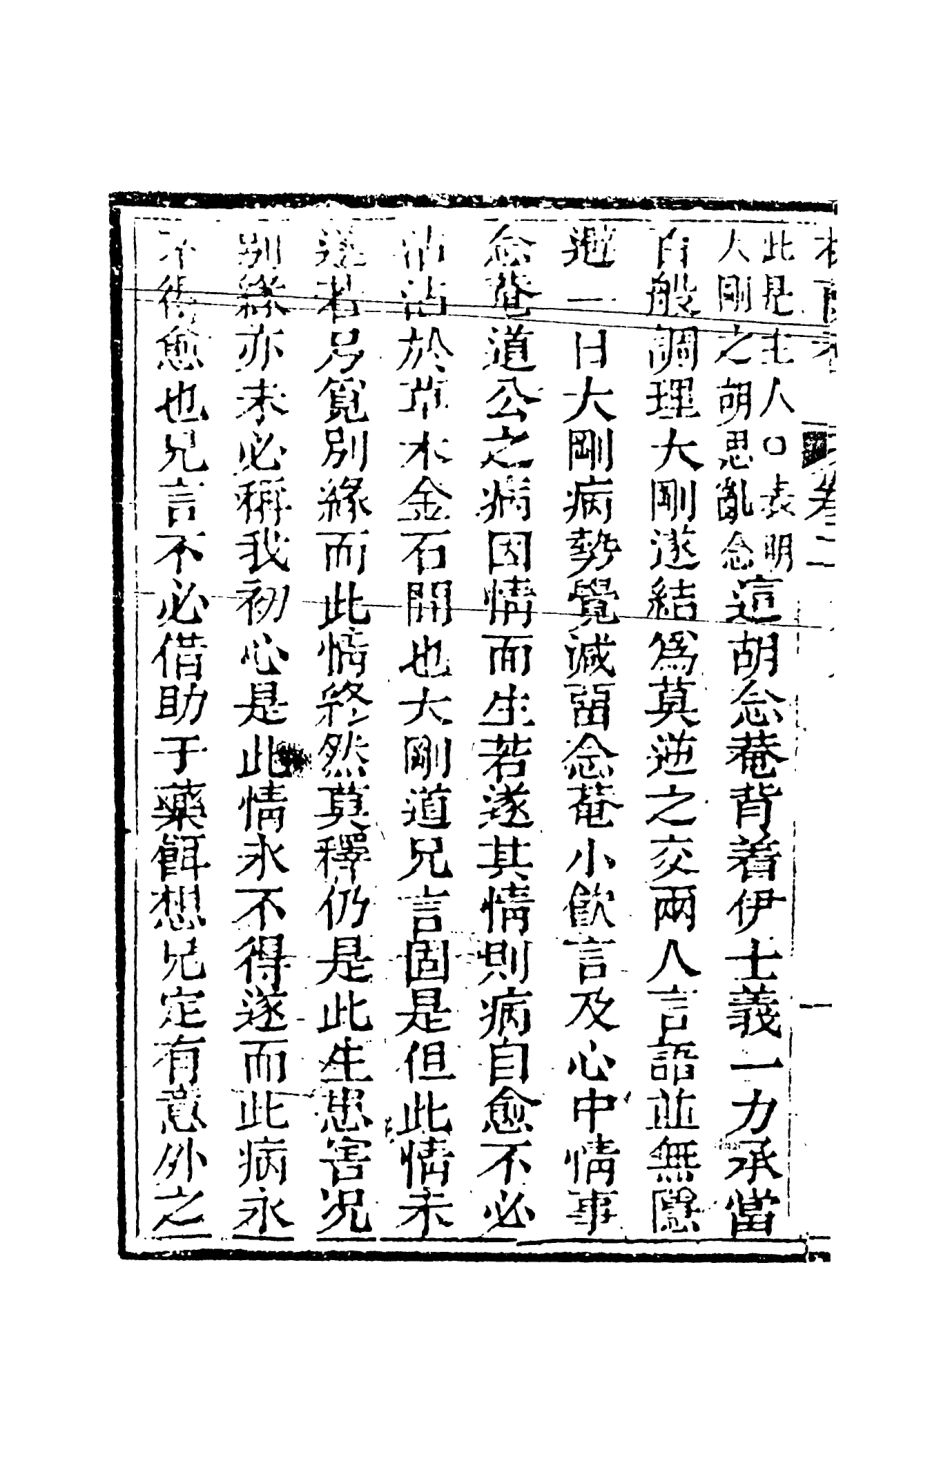 卷二
此是主人口表明
人剛之胡思亂念
這胡念菴背着伊士義一力承當
百般調理大剛遂結爲莫逆之交兩人言語並無隱
避一日大剛病勢覺減留念菴小飲言及心中情事
念菴道公之病因情而生若遂其情則病自愈不必
沾沾於草木金石間也大剛道兄言固是但此情未
遂若另覓別緣而此情終然莫釋仍是此生患害况
別緣亦未必稱我初心是此情永不得遂而此病永
不得愈也兄言不必借助于藥餌想兄定有意外之